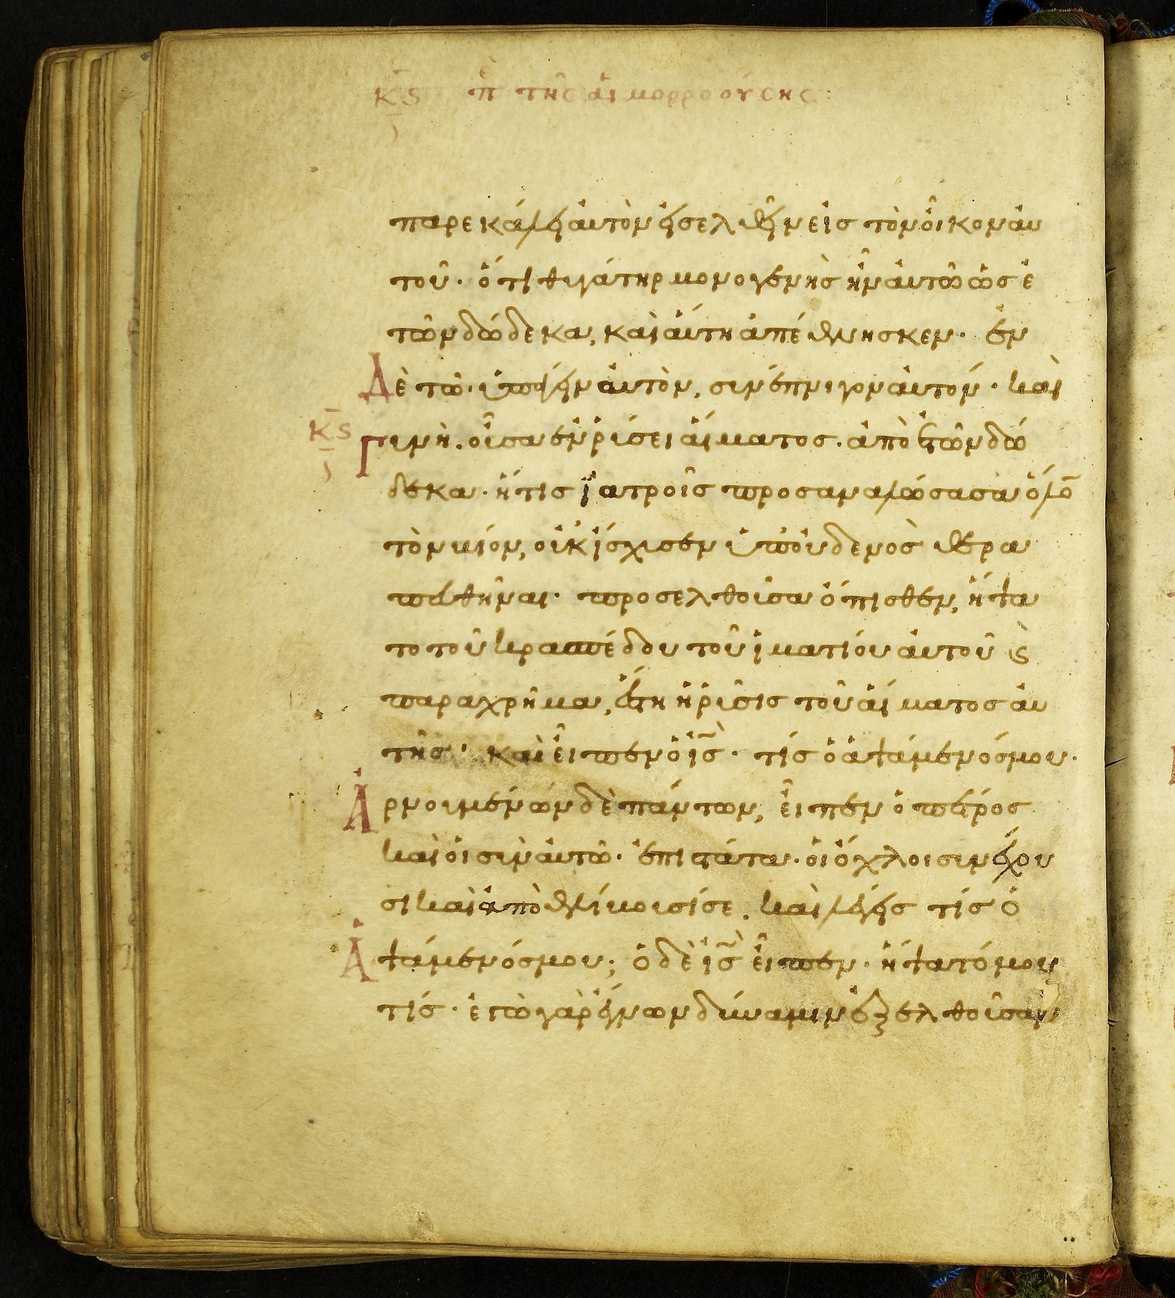 κϛ π τῆς αἱμορροούσης:
παρεκάλει αὐτὸν εἰσελθεῖν εἰς τὸν οἶκον αὐ
τοῦ· ὅτι θυγάτηρ μονογενὴς ἦν αὐτῶ ὡς ἐ
τῶν δώδεκα, καὶ αὕτη ἀπέθνησκεν· ἐν
Δὲ τῶ ὑπάγειν αὐτὸν, συνέπνιγον αὐτόν· καὶ
κϛ Γυνὴ οὖσα ἐν ῥύσει αἵματος· ἀπὸ ἐτῶν δώ
δεκα· ἥτις ἰατροῖς προσαναλώσασα ὅλο
τὸν βίον, οὐκ ἴσχυσεν ὑπ' οὐδενὸς θερα
πευθῆναι· προσελθοῦσα ὄπισθεν, ἥψα
το τοῦ κρασπέδου τοῦ ἱματίου αὐτοῦ ϗ
παραχρῆμα, ἔστη ἡ ῥύσις τοῦ αἵματος αὐ
τῆς· καὶ εἶπεν ὁ ις· τίς ὁ ἁψάμενός μου·
Ἀρνουμένων δὲ πάντων, εἶπεν ὁ πέτρος
καὶ οἱ σὺν αὐτῶ· ἐπιστάτα· οἱ ὄχλοι συνέχου
σί καὶ ἀποθλίβουσί σε, καὶ λέγεις τίς ὁ
Ἁψάμενός μου; ὁ δὲ ις εἶπεν· ἥψατό μου
τίς· ἐγὼ γὰρ ἔγνων δύναμιν ἐξελθοῦσαν